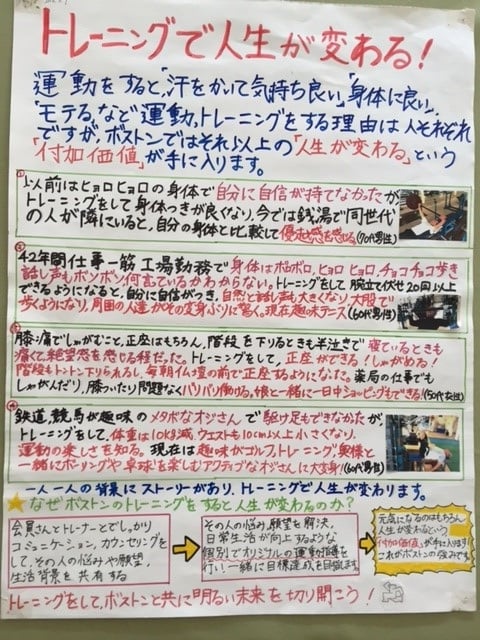 トレーニングで人生が変わる!
運動をすると、「汗をかいて気持ち良い」「身体に良い」
「モテる」など運動、トレーニングをする理由は人それぞれ
ですが、ボストンではそれ以上の「人生が変わる」という
「付加価値」が手に入ります。
以前はヒョロヒョロの身体で自分に自信が持てなかったが
トレーニングをして身体つきが良くなり、今では銭湯で同世代
の人が隣にいると、自分の身体と比較して優越感を感じる(70代男性)
42年間仕事一筋 工場勤務で身体はボロボロ、ヒョロヒョロ、チョコチョコ歩き
話し声もボソボソ何言っているかわからない。トレーニングをして腕立て伏せ20回以上
できるようになると、自分に自信がつき、自然と話し声も大きくなり、大股で
歩くようになり、周囲の人達がその変身ぶりに驚く。現在趣味テニス(60代男性)
膝痛でしゃがむこと、正座はもちろん、階段を下りるときも半泣きで寝ているときも
痛くて絶望感を感じる程だった。トレーニングをして、正座ができる!しゃがめる!
階段もトントン下りられるし、毎朝仏壇の前で正座するようになった。薬局の仕事でも
しゃがんだり、膝ついたり問題なくバリバリ働ける。娘と一緒に一日中ショッピングもできる!(50代女性)
鉄道、競馬が趣味のメタボなオジさんで駆け足もできなかったが
トレーニングをして、体重は10kg減、ウエストも10cm以上小さくなり、
運動の楽しさを知る。現在は趣味がゴルフ、トレーニング、奥様と
一緒にボーリングや卓球を楽しむアクティブなオジさんに大変身!(60代男性)
一人一人の背景にストーリーがあり、トレーニングで人生が変わります。
★なぜボストンのトレーニングをすると人生が変わるのか?
会員さんとトレーナーとでしっかり
コミュニケーション、カウンセリングを
して、その人の悩みや願望、
生活背景を共有する
その人の悩み、願望を解決。
日常生活が向上するような
個別でオリジナルの運動指導を
行い、一緒に目標達成を目指します。
元気になるのはもちろん
人生が変わるという
「付加価値」が手に入ります
これがボストンの強みです。
トレーニングをして、ボストンと共に明るい未来を切り開こう!